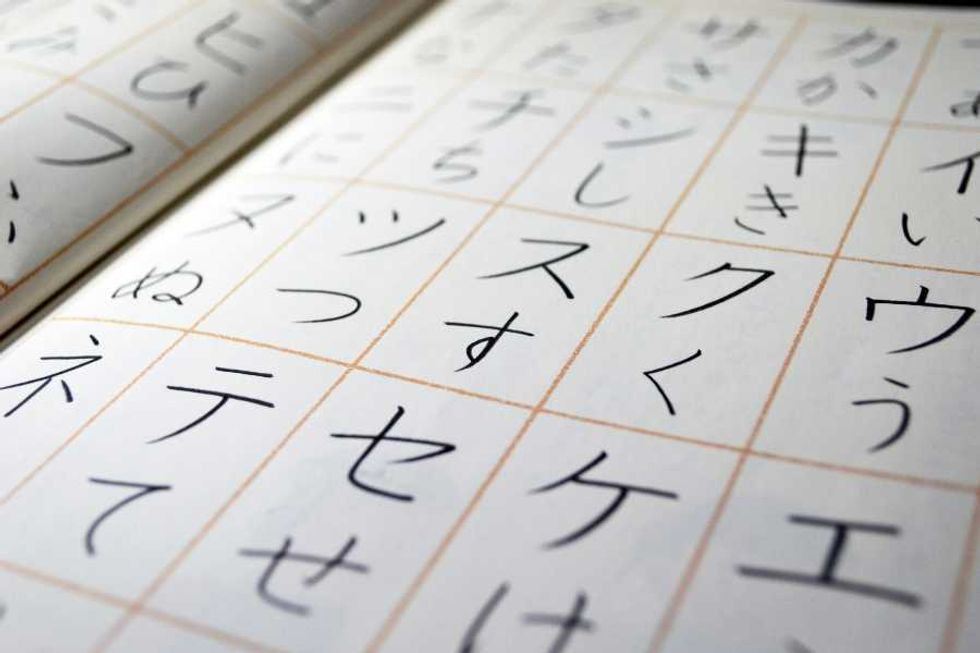 あ
イ
い
ウ
う
エ
カ
か
キ
き
ク
く
ケ
け
サ
さ
シ
し
ス
す
セ
せ
タ
た
チ
ち
ツ
つ
テ
て
な
ニ
に
ヌ
ぬ
ネ
ヒ
ひ
フ